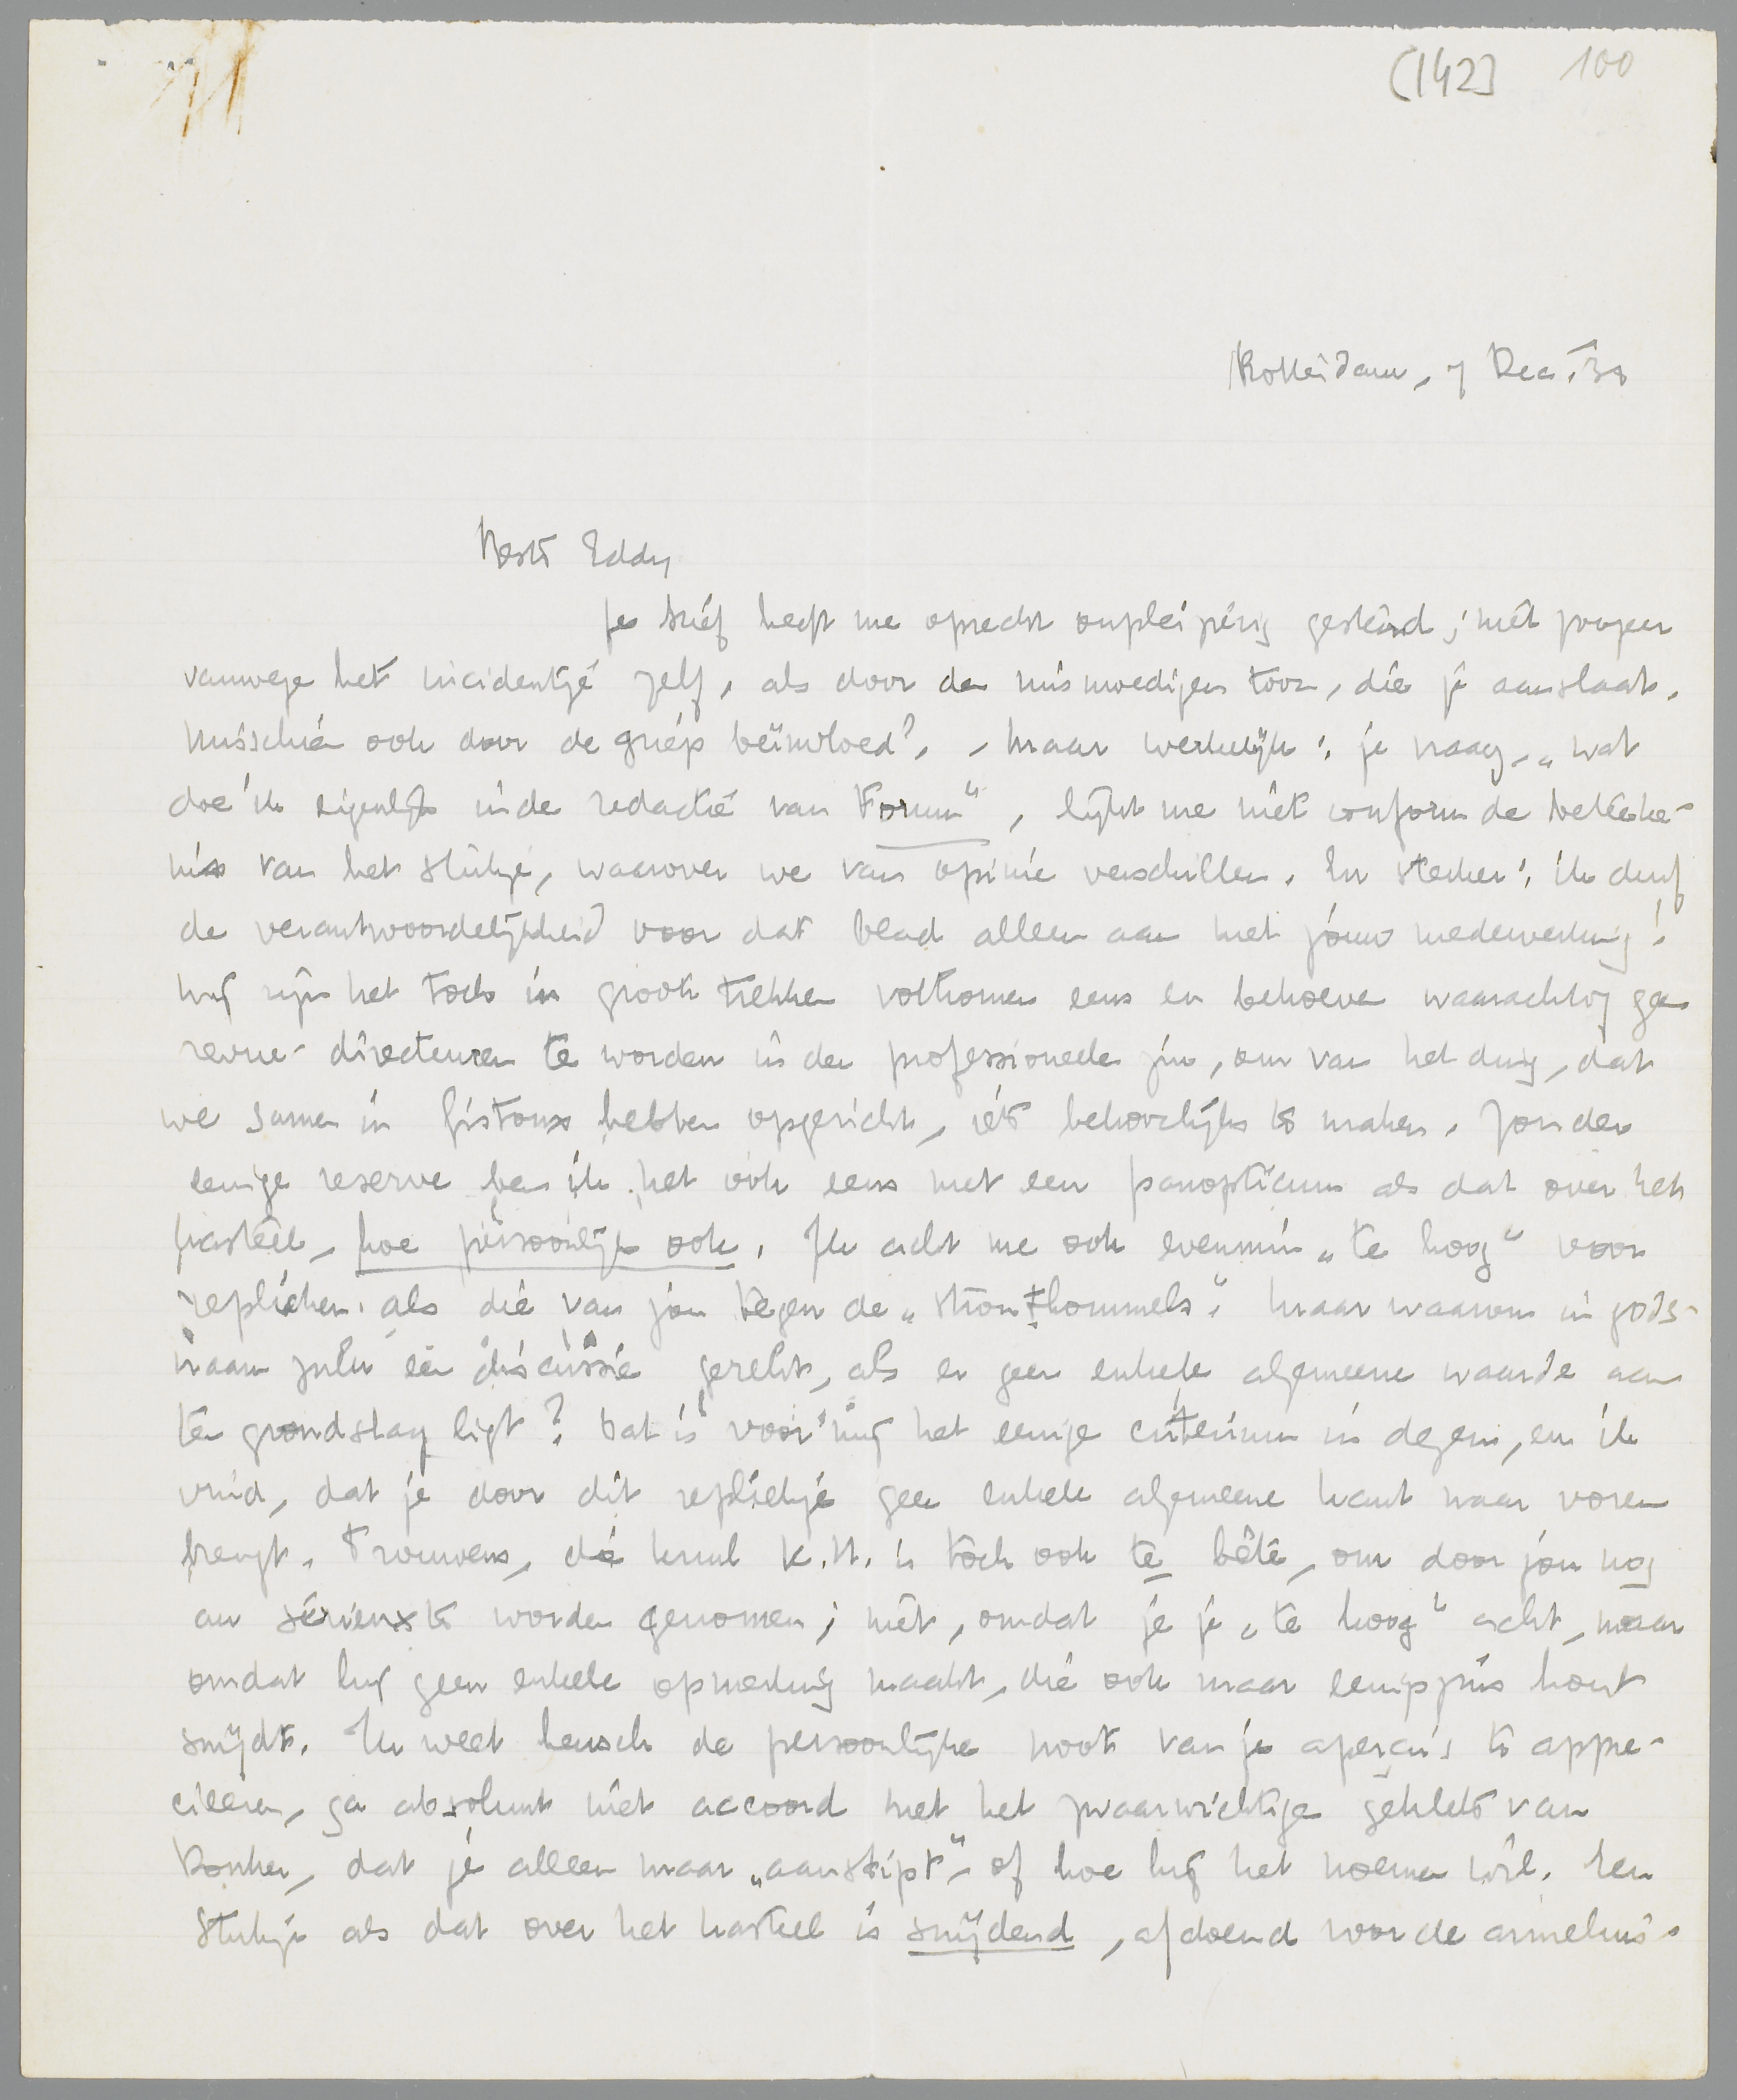 (142] 100
Rotterdam, 7 Dec. '32
Beste Eddy
Je brief heeft me oprecht onpleizierig gestemd; niet zoozeer
vanwege het incidentje zelf, als door den mismoedigen toon, die je aanslaat.
Misschien ook door de griep beïnvloed? - Maar werkelijk: je vraag, „wat
doe ik eigenlijk in de redactie van Forum", lijkt me niet conform de beteeke-
nis van het stukje, waarover we van opinie verschillen. En sterker: ik durf
de verantwoordelijkheid voor dat blad alleen aan met jouw medewerking!
Wij zijn het toch in groote trekken volkomen eens en behoeven waarachtig geen
revue-directeuren te worden in den professioneelen zin, om van het ding, dat
we samen in Gistoux hebben opgericht, iets behoorlijks te maken. Zonder
eenige reserve ben ik het ook eens met een panopticum als dat over het
kasteel, hoe persoonlijk ook. Ik acht me ook evenmin „te hoog" voor
replieken als die van jou tegen de „stronthommels". Maar waarom in gods-
naam zulk een discussie gerekt, als er geen enkele algemeene waarde aan
ten grondslag ligt? Dat is voor mij het eenige criterium in dezen, en ik
vind, dat je door dit repliekje geen enkele algemeene kant naar voren
brengt. Trouwens, die knul K.H. is toch ook te bête, om door jou nog
au sérieux te worden genomen; niet, omdat je je „te hoog" acht, maar
omdat hij geen enkele opmerking maakt, die ook maar eenigszins hout
snijdt. Ik weet heusch de persoonlijke noot van je aperçu's te appre-
cieeren, ga absoluut niet accoord met het zwaarwichtige geklets van
Donker, dat je alleen maar „aanstipt", of hoe hij het noemen wil. Een
stukje als dat over het kasteel is snijdend, afdoend voor de armelui's-